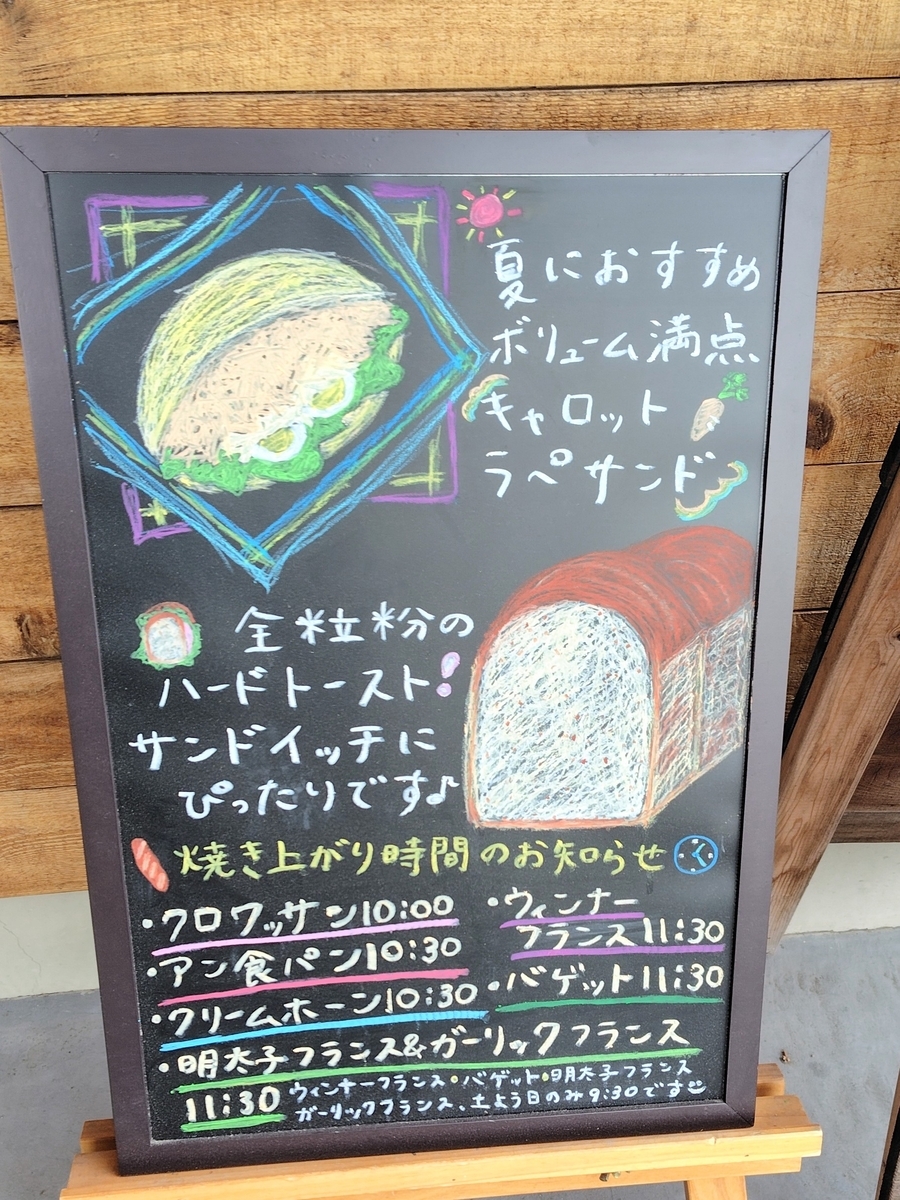 夏におすすめ
ボリューム満点
キャロット
ラペサンド
全粒粉の
ハードトースト!
サンドイッチに
ぴったりです♪
焼き上がり時間のお知らせ
・クロワッサン10:00
・アン食パン10:30
・クリームホーン10:30
・ウィンナー
フランス11:30
・バゲット11:30
・明太子フランス&ガーリックフランス
11:30
ウィンナーフランス・バゲット・明太子フランス
ガーリックフランス、土よう日のみ9:30です☺